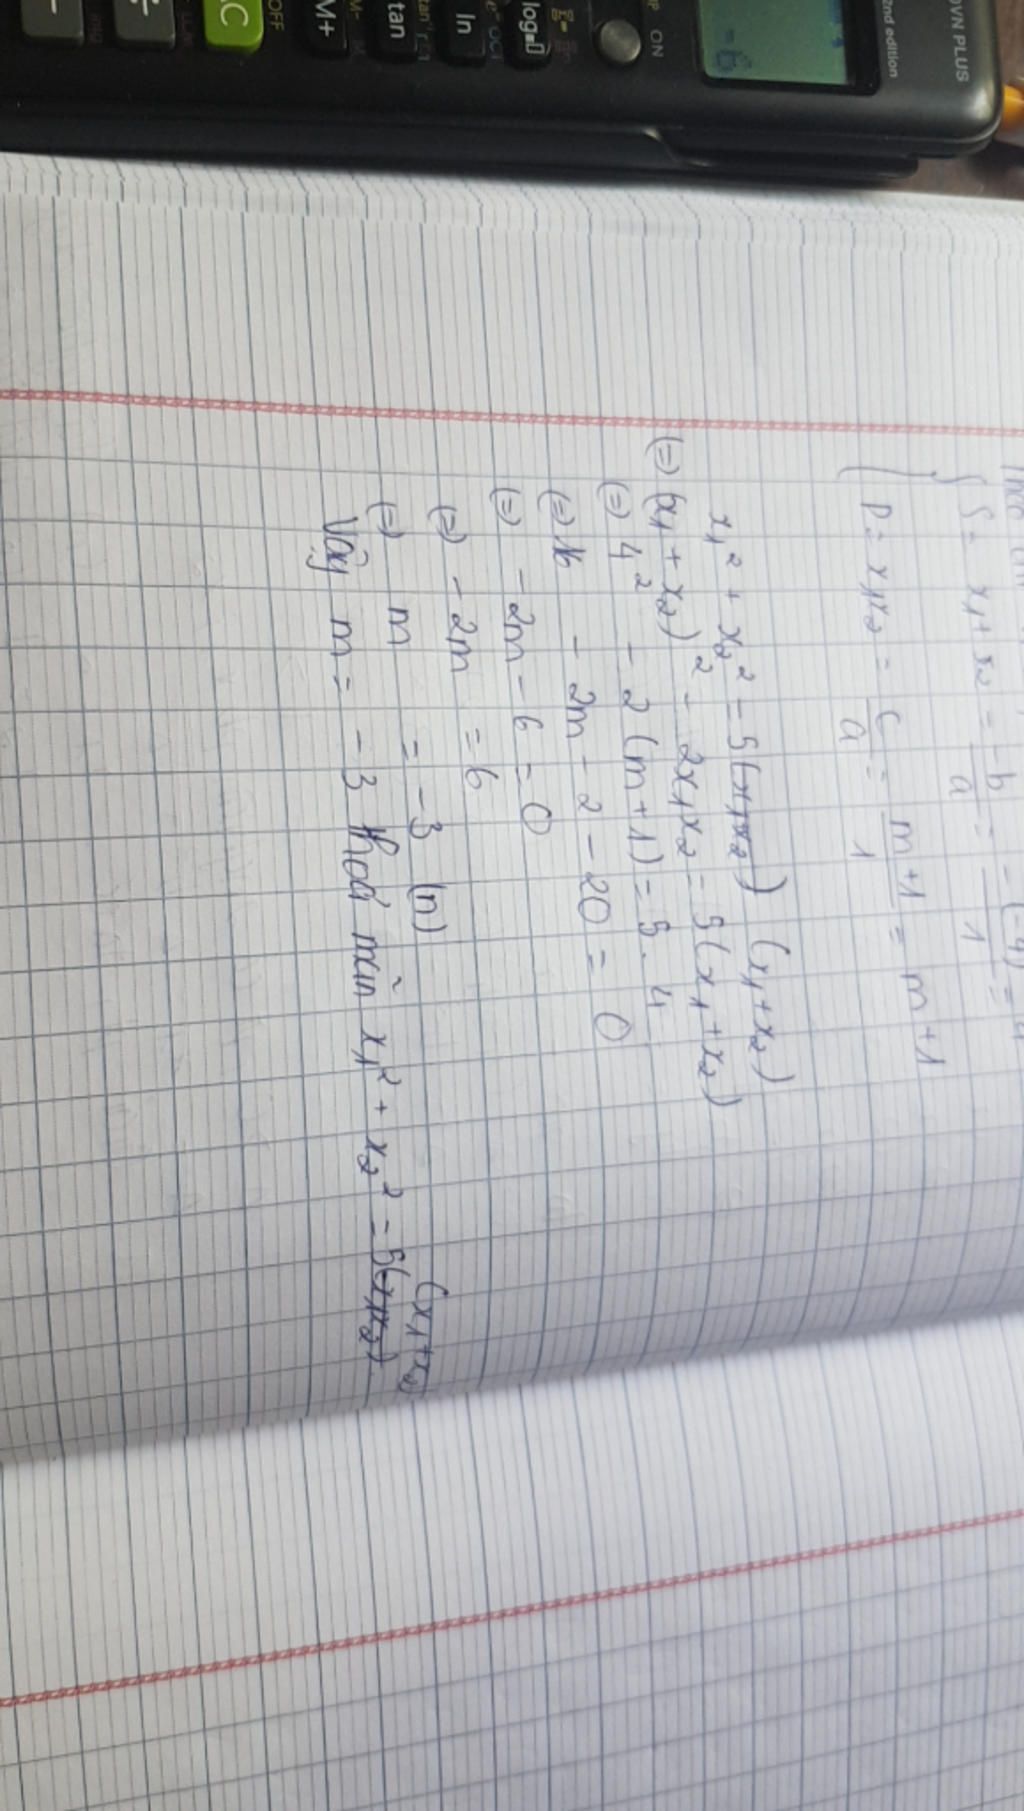 OVN PLUS
2nd edition
ON
log
ln
tan
M+
M-
OFF
AC
-6
S = x₁ + x₂ = -b/a = -(-4)/1 = 4
P = x₁x₂ = c/a = m+1/1 = m+1
x₁² + x₂² = 5(x₁x₂) (x₁+x₂)
(=) (x₁ + x₂)² - 2x₁x₂ = 5(x₁+x₂)
(=) 4² - 2(m+1) = 5.4
(=) 16 - 2m - 2 - 20 = 0
(=) -2m - 6 = 0
(=) -2m = 6
(=) m = -3 (n)
Vậy m = -3 thoả mãn x₁² + x₂² = 5(x₁x₂). (x₁+x₂